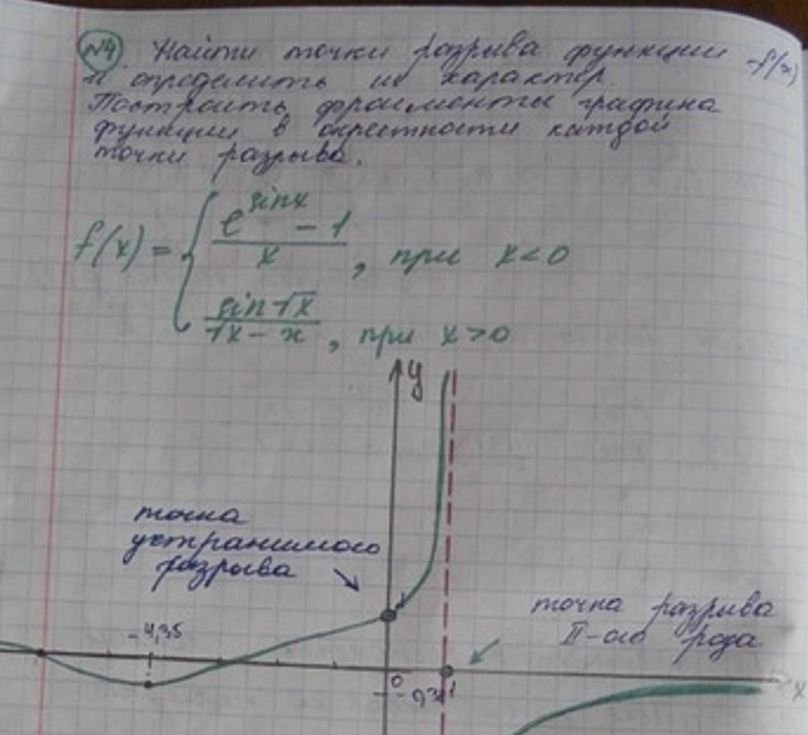 №4. Найти точки разрыва функции f(x)
и определить их характер.
Построить фрагменты графика
функции в окрестности каждой
точки разрыва.
f(x) = { (e^sinx − 1)/x, при x<0
sin√x/(√x − x), при x>0
y
точка
устранимого
разрыва
1
точка разрыва
II-ого рода
-4,35
0
1
x